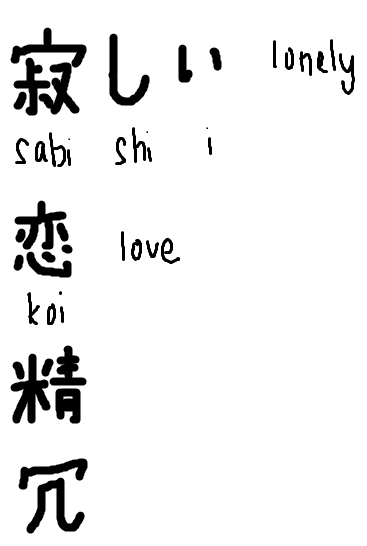 寂しい lonely
sabi shi i
恋 love
koi
精
冗